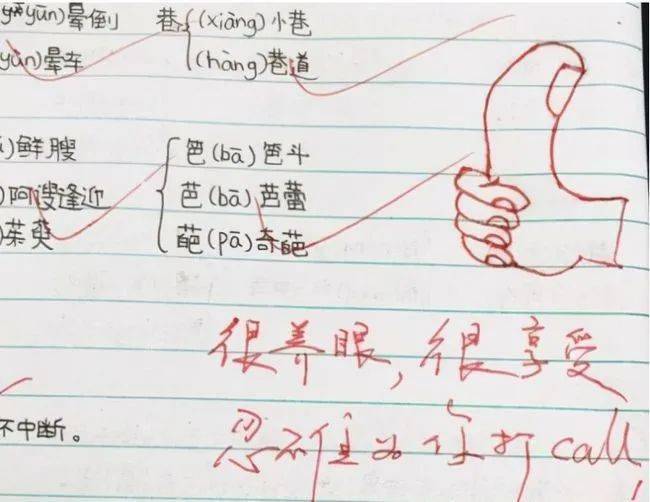 yūn)晕倒 巷 (xiàng)小巷
yùn)晕车 (hàng)巷道
)鲜腴 笆(bā)笆斗
)阿谀逢迎 芭(bā)芭蕾
)茱萸 葩(pā)奇葩
很养眼,很享受
忍不住为你打call!
不中断。